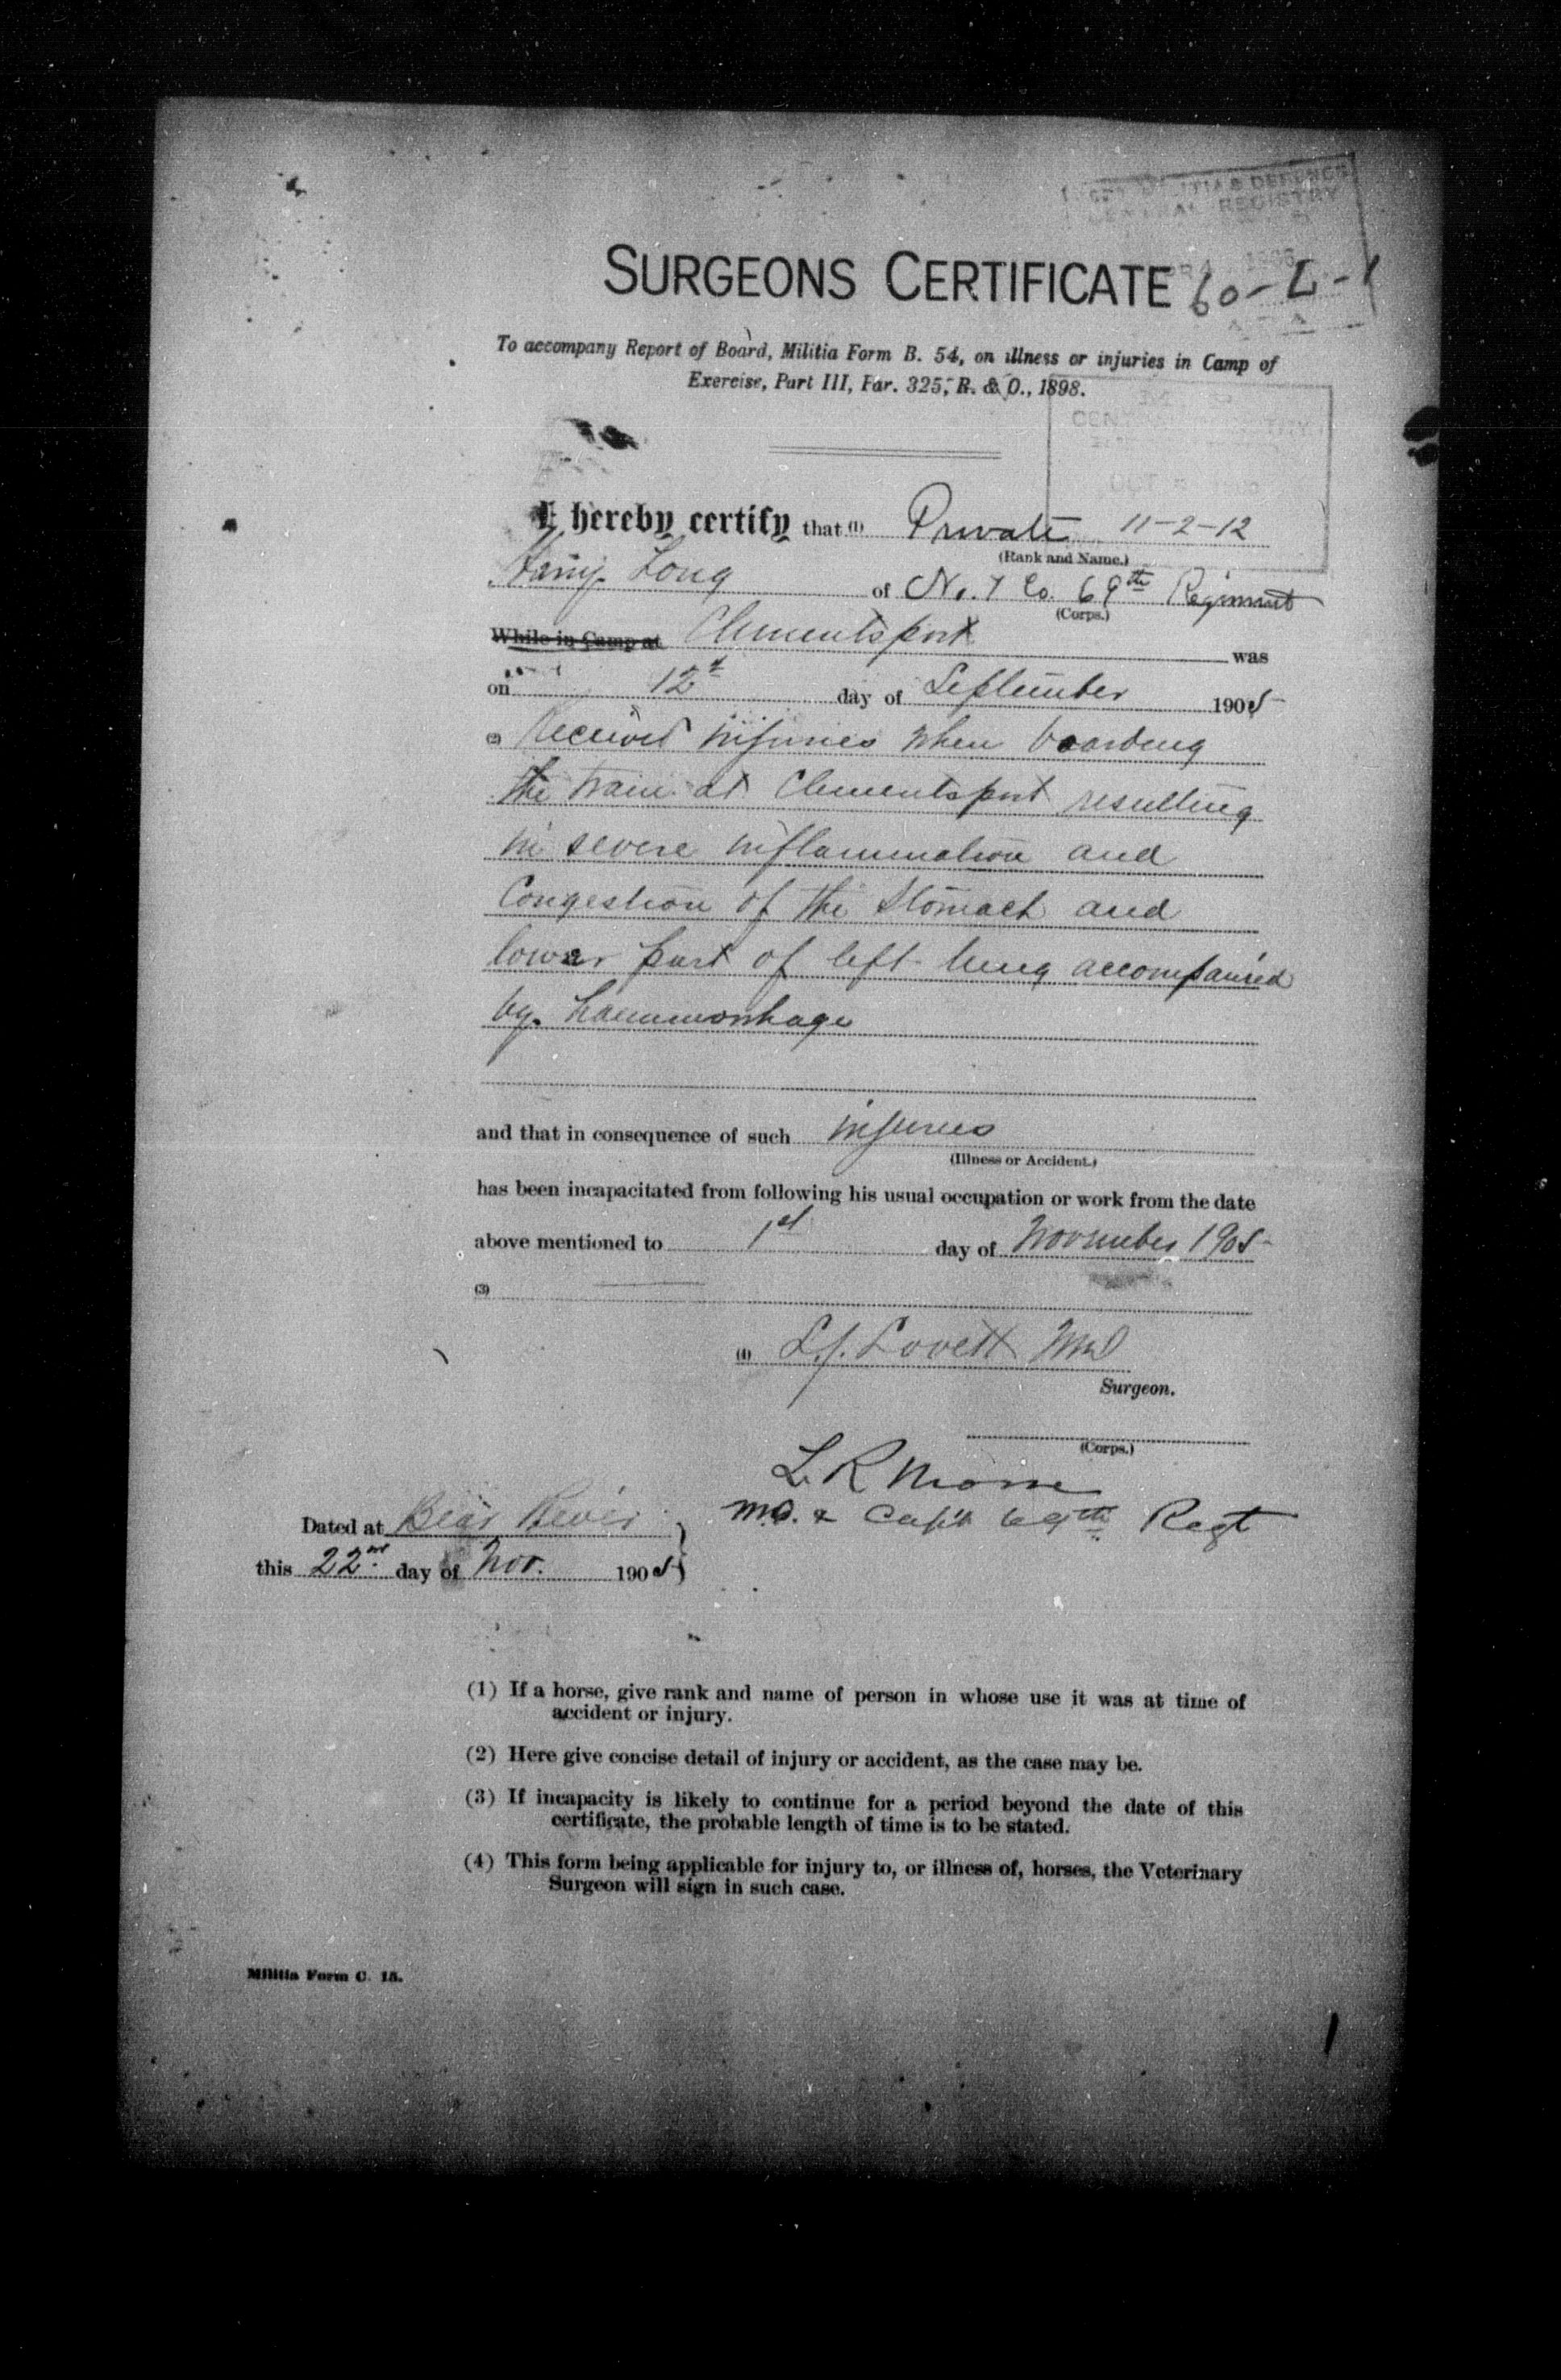 MILITIA & DEFENCE
CENTRAL REGISTRY
SURGEONS CERTIFICATE 60-L-1
To accompany Report of Board, Militia Form B. 54, on illness or injuries in Camp of
Exercise, Part III, Par. 325, R. & O., 1898.
OCT
I hereby certify that (1) Private 11-2-12
(Rank and Name.)
Harry Long of No. 7 Co. 69th Regiment
(Corps.)
While in Camp at Clementsport was
on 12th day of September 1905
(2) Received injuries when boarding
the train at Clementsport resulting
in severe inflammation and
Congestion of the Stomach and
lower part of left lung accompanied
by haemmorrhage
and that in consequence of such injuries
(Illness or Accident.)
has been incapacitated from following his usual occupation or work from the date
above mentioned to 1st day of November 1905
(3)
(4) L.J. Lovett MD
Surgeon.
(Corps.)
L. R Morse
M.D. & Capt 69th Regt
Dated at Bear River
this 22nd day of Nov. 1905
(1) If a horse, give rank and name of person in whose use it was at time of
accident or injury.
(2) Here give concise detail of injury or accident, as the case may be.
(3) If incapacity is likely to continue for a period beyond the date of this
certificate, the probable length of time is to be stated.
(4) This form being applicable for injury to, or illness of, horses, the Veterinary
Surgeon will sign in such case.
Militia Form C. 15.